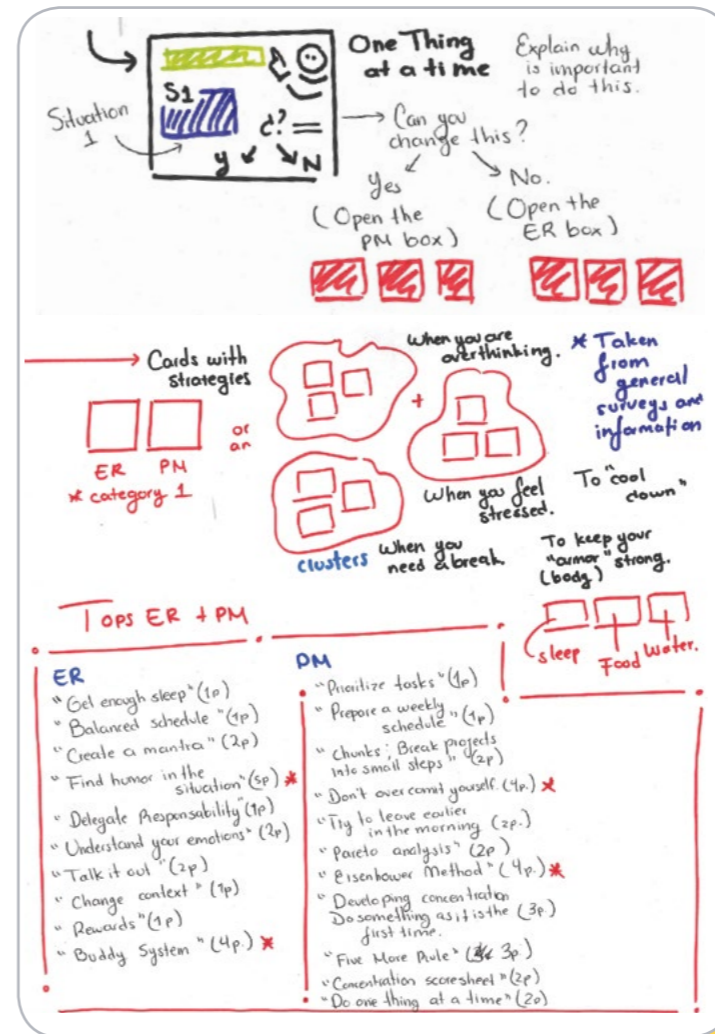 One Thing
at a time
Explain why
is important
to do this.
S1
Situation
1
¿? =
y N
Can you
change this?
Yes
(Open the
PM box)
No.
(Open the
ER box)
Cards with
strategies
ER PM
* category 1
or
an
+
When you are
overthinking.
When you feel
stressed.
clusters When you
need a break.
* Taken
from
general
surveys and
information
To "cool
down"
To keep your
"armor" strong.
(body)
sleep Food Water.
Tops ER + PM
ER
"Get enough sleep" (1p)
"Balanced schedule" (1p)
"Create a mantra" (2p)
"Find humor in the
situation" (5p) *
"Delegate Responsability" (1p)
"Understand your emotions" (2p)
"Talk it out" (2p)
"Change context" (1p)
"Rewards" (1p)
"Buddy System" (4p.) *
PM
"Prioritize tasks" (1p)
"Prepare a weekly
schedule" (1p)
"Chunks; Break projects
into small steps" (2p)
"Don't over commit yourself. (4p.) *
"Try to leave earlier
in the morning (2p.)
"Pareto analysis" (2p)
"Eisenhower Method" (4p.) *
"Developing concentration
Do something as if it is the (3p.)
first time.
"Five More Rule" (3p.)
"Concentration scoresheet" (2p)
"Do one thing at a time" (2p)